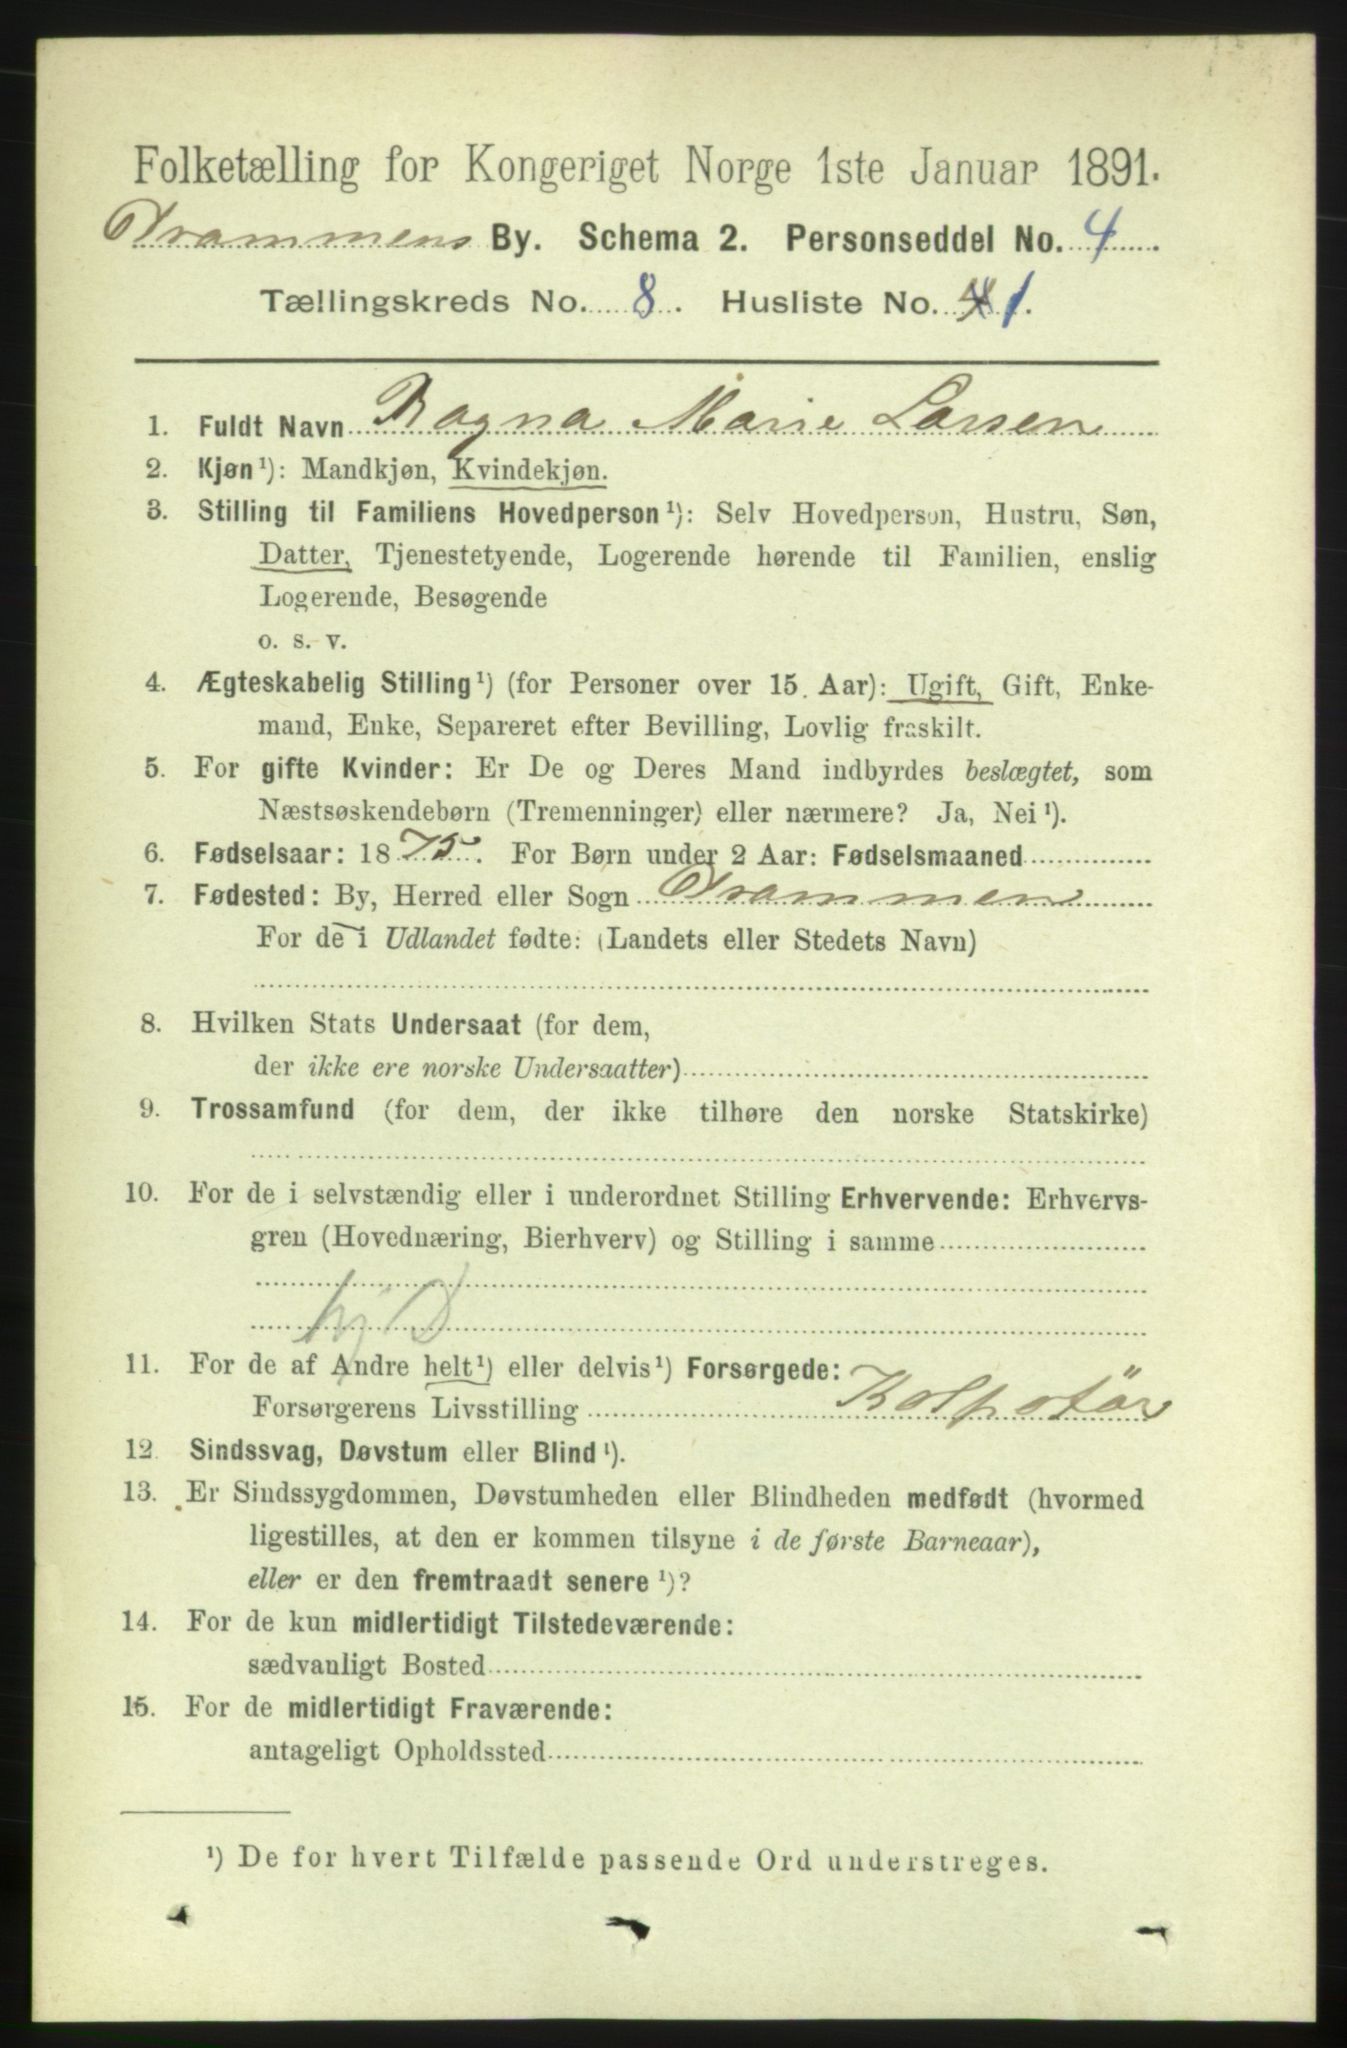 Folketælling for Kongeriget Norge 1ste Januar 1891.
Drammens By. Schema 2. Personseddel No. 4.
Tællingskreds No. 8. Husliste No. 1.
1. Fuldt Navn Ragna Marie Larsen
2. Kjøn¹): Mandkjøn, Kvindekjøn.
3. Stilling til Familiens Hovedperson¹): Selv Hovedperson, Hustru, Søn,
Datter, Tjenestetyende, Logerende hørende til Familien, enslig
Logerende, Besøgende
o. s. v.
4. Ægteskabelig Stilling¹) (for Personer over 15 Aar): Ugift, Gift, Enke-
mand, Enke, Separeret efter Bevilling, Lovlig fraskilt.
5. For gifte Kvinder: Er De og Deres Mand indbyrdes beslægtet, som
Næstsøskendebørn (Tremenninger) eller nærmere? Ja, Nei¹).
6. Fødselsaar: 1875. For Børn under 2 Aar: Fødselsmaaned
7. Fødested: By, Herred eller Sogn Drammen
For de i Udlandet fødte: (Landets eller Stedets Navn)
8. Hvilken Stats Undersaat (for dem,
der ikke ere norske Undersaatter)
9. Trossamfund (for dem, der ikke tilhøre den norske Statskirke)
10. For de i selvstændig eller i underordnet Stilling Erhvervende: Erhvervs-
gren (Hovednæring, Bierhverv) og Stilling i samme
11. For de af Andre helt¹) eller delvis¹) Forsørgede:
Forsørgerens Livsstilling Kolpotör
12. Sindssvag, Døvstum eller Blind¹).
13. Er Sindssygdommen, Døvstumheden eller Blindheden medfødt (hvormed
ligestilles, at den er kommen tilsyne i de første Barneaar),
eller er den fremtraadt senere¹)?
14. For de kun midlertidigt Tilstedeværende:
sædvanligt Bosted
15. For de midlertidigt Fraværende:
antageligt Opholdssted
¹) De for hvert Tilfælde passende Ord understreges.